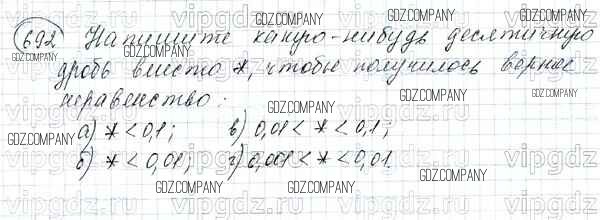 692 Напишите какую-нибудь десятичную
дробь вместо *, чтобы получилось верное
неравенство:
а) * < 0,1; в) 0,01 < * < 0,1;
б) * < 0,01; г) 0,001 < * < 0,01